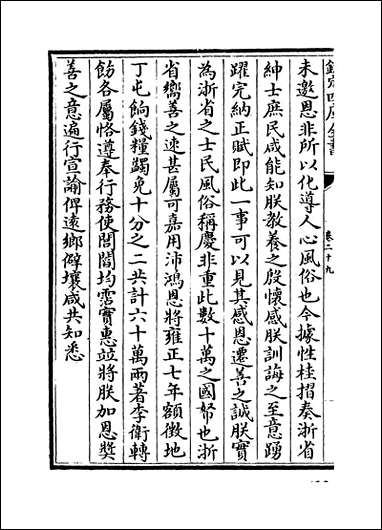 欽定四庫全書
卷二十九
未邀恩非所以化導人心風俗也今據性桂摺奏浙省
紳士庶民咸能知朕教養之殷懷感朕訓誨之至意踴
躍完納正賦即此一事可以見其感恩遷善之誠朕實
為浙省之士民風俗稱慶非重此數十萬之國帑也浙
省嚮善之速甚屬可嘉用沛鴻恩將雍正七年額徵地
丁屯餉錢糧蠲免十分之二共計六十萬兩著李衛轉
飭各屬恪遵奉行務使閭閻均霑實惠竝將朕加恩獎
善之意遍行宣諭俾遠鄉僻壤咸共知悉